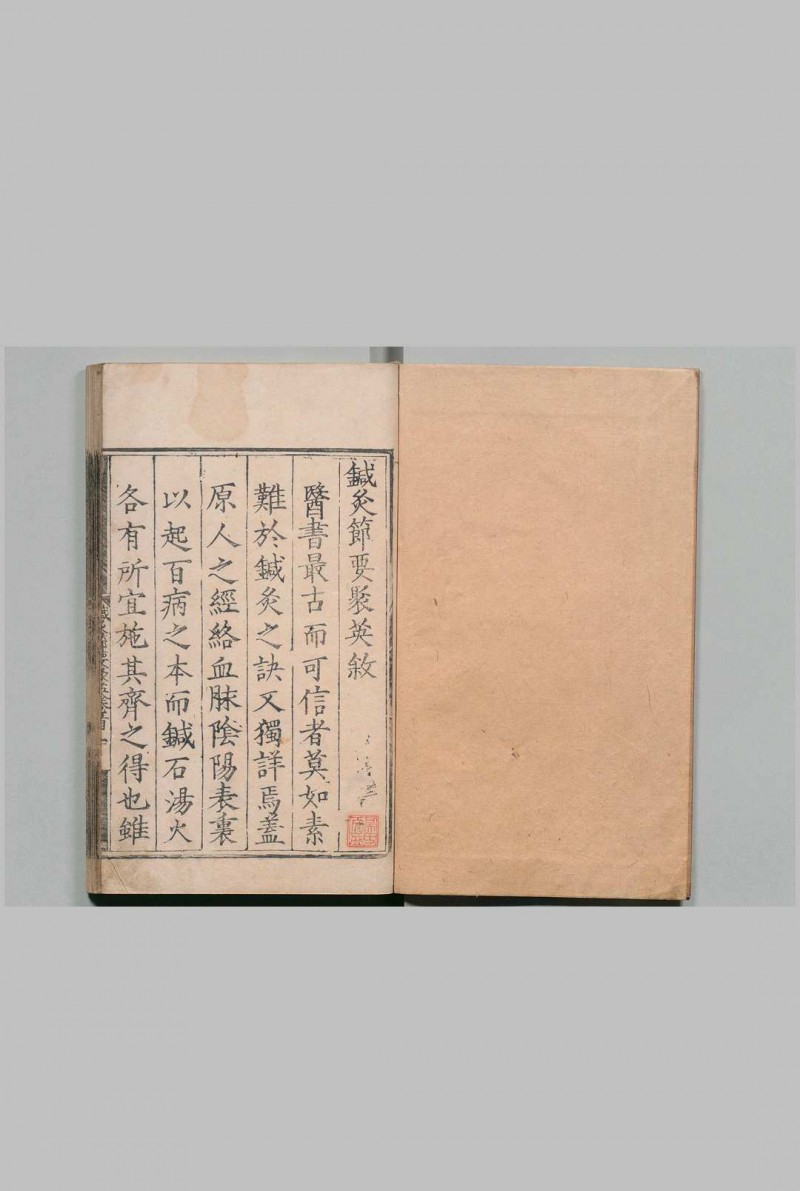 鍼灸節要聚英敘
醫書最古而可信者莫如素
難於鍼灸之訣又獨詳焉蓋
原人之經絡血脉陰陽表裏
以起百病之本而鍼石湯火
各有所宜施其齊之得也雖